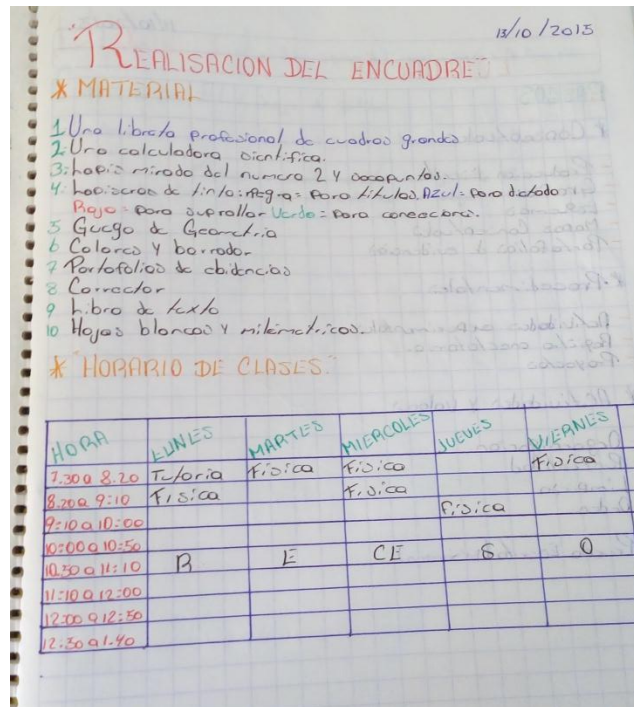 13/10/2015
"REALISACION DEL ENCUADRE"
* MATERIAL
1 Una libreta profesional de cuadros grandes
2: Una calculadora cientifica.
3: Lapiz mirado del numero 2 y sacapuntas.
4: Lapiseros de tinta: Negra= Para titulos. Azul= para dictado
Rojo= para suprallar Verde= Para correcions.
5 Guego de Geometria
6 Colores y borrador
7 Portofolios de ebidencias
8 Corrector
9 Libro de texto
10 Hojas blancas y milimetricas.
* "HORARIO DE CLASES."
HORA LUNES MARTES MIERCOLES JUEVES VIERNES
7:30 a 8:20 Tutoria Fisica Fisica Fisica
8:20 a 9:10 Fisica Fisica
9:10 a 10:00 Fisica
10:00 a 10:50
10:50 a 11:10 R E CE S O
11:10 a 12:00
12:00 a 12:50
12:50 a 1:40